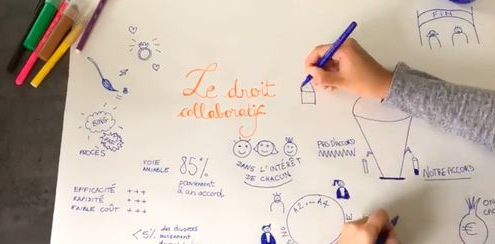 FIN
Le droit
collaboratif
BING
PAF!
PROCÈS
VOIE
AMIABLE
85%
parviennent
à un accord.
DANS L'INTÉRÊT
DE CHACUN
PAS D'ACCORD
NOTRE ACCORD
EFFICACITÉ +++
RAPIDITÉ +++
FAIBLE COÛT +++
<5% des divorces
€